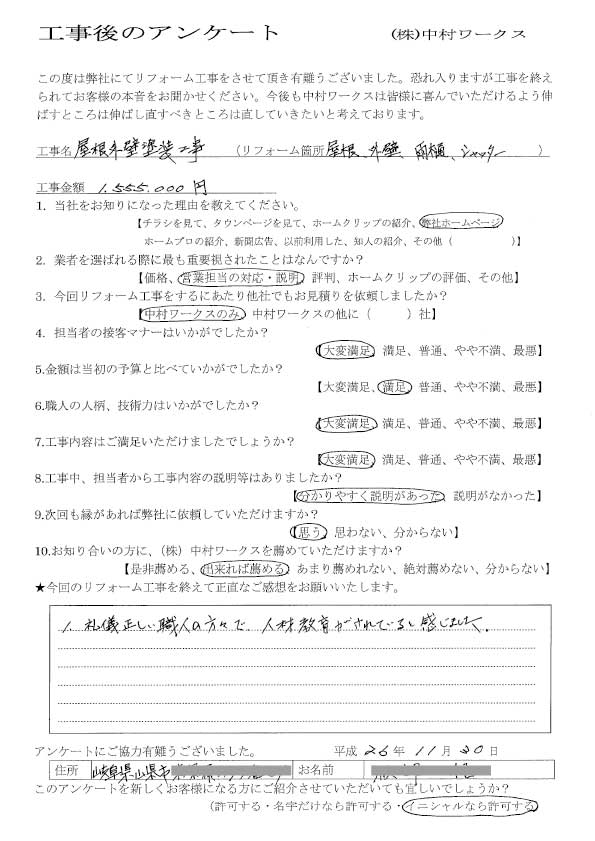 工事後のアンケート　(株)中村ワークス
この度は弊社にてリフォーム工事をさせて頂き有難うございました。恐れ入りますが工事を終え
られてお客様の本音をお聞かせください。今後も中村ワークスは皆様に喜んでいただけるよう伸
ばすところは伸ばし直すべきところは直していきたいと考えております。
工事名 屋根外壁塗装工事　（リフォーム箇所 屋根、外壁、雨樋、シャッター　）
工事金額　1.555.000円
1. 当社をお知りになった理由を教えてください。
【チラシを見て、タウンページを見て、ホームクリップの紹介、弊社ホームページ
ホームプロの紹介、新聞広告、以前利用した、知人の紹介、その他（　　）】
2. 業者を選ばれる際に最も重要視されたことはなんですか？
【価格、営業担当の対応・説明、評判、ホームクリップの評価、その他】
3. 今回リフォーム工事をするにあたり他社でもお見積りを依頼しましたか？
【中村ワークスのみ、中村ワークスの他に（　　）社】
4. 担当者の接客マナーはいかがでしたか？
【大変満足、満足、普通、やや不満、最悪】
5.金額は当初の予算と比べていかがでしたか？
【大変満足、満足、普通、やや不満、最悪】
6.職人の人柄、技術力はいかがでしたか？
【大変満足、満足、普通、やや不満、最悪】
7.工事内容はご満足いただけましたでしょうか？
【大変満足、満足、普通、やや不満、最悪】
8.工事中、担当者から工事内容の説明等はありましたか？
【分かりやすく説明があった、説明がなかった】
9.次回も縁があれば弊社に依頼していただけますか？
【思う、思わない、分からない】
10.お知り合いの方に、（株）中村ワークスを薦めていただけますか？
【是非薦める、出来れば薦める、あまり薦めれない、絶対薦めない、分からない】
★今回のリフォーム工事を終えて正直なご感想をお願いいたします。
1. 礼儀正しい職人の方々で、人材教育がされていると感じました。
アンケートにご協力有難うございました。　平成 26 年 11 月 30 日
住所　岐阜県山県市　お名前
このアンケートを新しくお客様になる方にご紹介させていただいても宜しいでしょうか？
（許可する・名字だけなら許可する・イニシャルなら許可する）